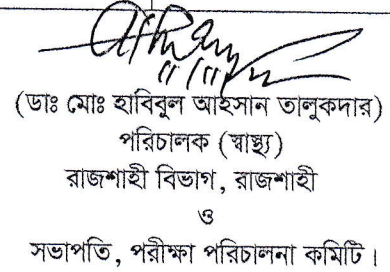 (ডাঃ মোঃ হাবিবুল আহসান তালুকদার)
পরিচালক (স্বাস্থ্য)
রাজশাহী বিভাগ, রাজশাহী
ও
সভাপতি, পরীক্ষা পরিচালনা কমিটি।